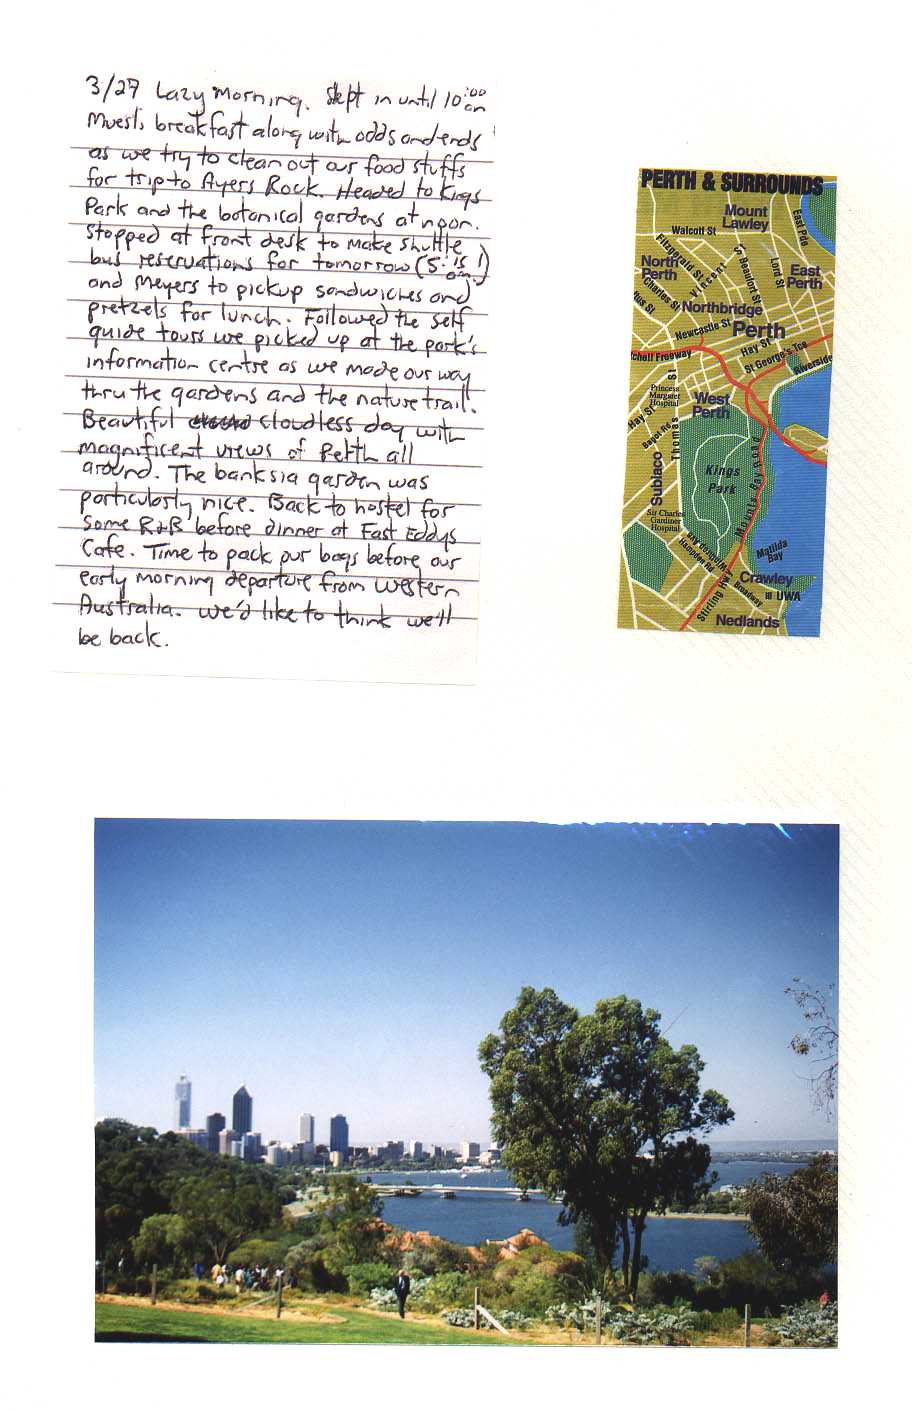 3/27 Lazy Morning. Slept in until 10:00 am
Muesli breakfast along with odds and ends
as we try to clean out our food stuffs
for trip to Ayers Rock. Headed to Kings
Park and the botanical gardens at noon.
Stopped at front desk to make shuttle
bus reservations for tomorrow (5:15 am!)
and Meyers to pickup sandwiches and
pretzels for lunch. Followed the self
guide tours we picked up at the park's
information centre as we made our way
thru the gardens and the nature trail.
Beautiful cloudless day with
magnificent views of Perth all
around. The banksia garden was
particularly nice. Back to hostel for
some R+B before dinner at Fast Eddys
Cafe. Time to pack our bags before our
early morning departure from Western
Australia. We'd like to think we'll
be back.
PERTH & SURROUNDS
Mount
Lawley
East Pde
Walcott St
Fitzgerald St
Vincent St
Beaufort St
Lord St
North
Perth
East
Perth
Charles St
Northbridge
Newcastle St
Perth
Hay St
St George's Tce
Riverside
tchell Freeway
Princess
Margaret
Hospital
Thomas St
West
Perth
Hay St
Bagot Rd
Subiaco
Kings
Park
Mounts Bay Road
Sir Charles
Gardiner
Hospital
Winthrop Av
Hampden Rd
Matilda
Bay
Crawley
UWA
Broadway
Stirling Hwy
Nedlands